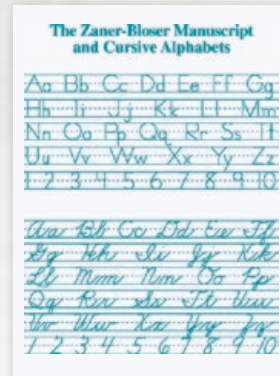 The Zaner-Bloser Manuscript
and Cursive Alphabets
Aa Bb Cc Dd Ee Ff Gg
Hh Ii Jj Kk Ll Mm
Nn Oo Pp Qq Rr Ss Tt
Uu Vv Ww Xx Yy Zz
1 2 3 4 5 6 7 8 9 10
Aa Bb Cc Dd Ee Ff
Gg Hh Ii Jj Kk
Ll Mm Nn Oo Pp
Qq Rr Ss Tt Uu
Vv Ww Xx Yy Zz
1 2 3 4 5 6 7 8 9 10